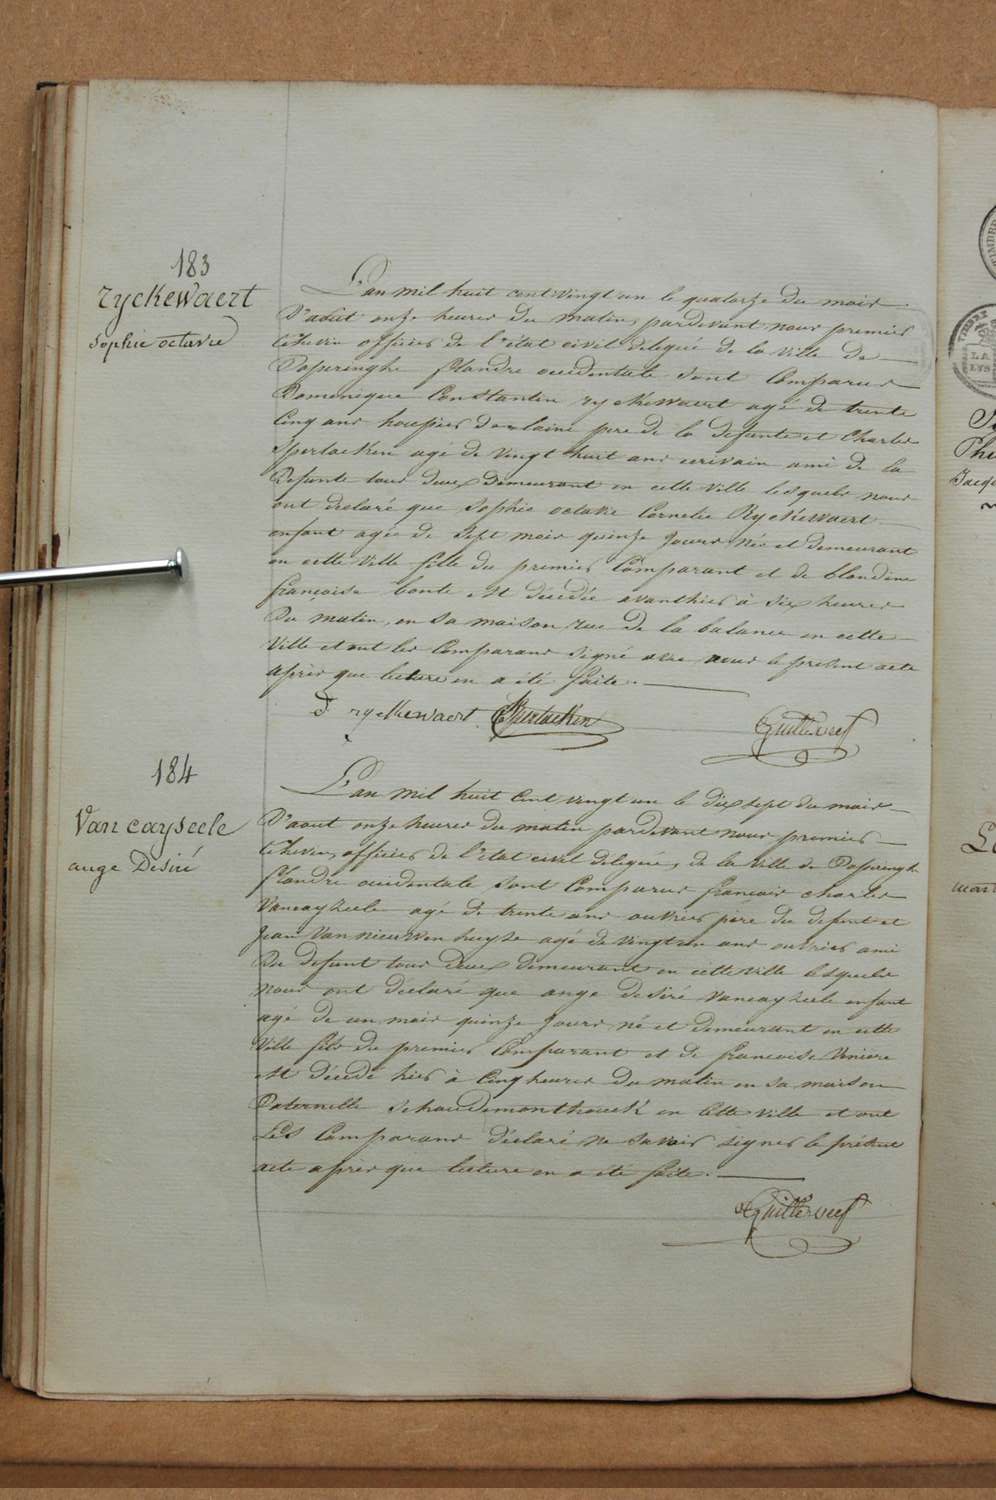 183
ryckewaert
Sophie octavie
L'an mil huit cent vingt un le quatorze du mois
D'aout onze heures du matin, pardevant nous premier
echevin officier de l'état civil delegué de la ville de
Poperinghe flandre occidentale sont Comparus
Dominique Constantin ryckewaert agé de trente
cinq ans houpier de laine pere de la defunte et Charles
Sperlaeken agé de vingt huit ans ecrivain ami de la
Defunte tous deux demeurant en cette ville lesquels nous
ont declaré que Sophie octavie Cornelie Ryckewaert
enfant agée de sept mois quinze jours née et demeurant
en cette ville fille du premier Comparant et de blondine
françoise bonte est décédée avanthier à six heures
Du matin, en sa maison rue de la balance en cette
Ville et ont les Comparans signé avec nous le présent acte
après que lecture en a été faite.
D ryckewaert Sperlaeken
184
Van cayseele
ange Désiré
L'an mil huit cent vingt un le dix sept du mois
D'aout onze heures du matin pardevant nous premier
echevin, officier de l'etat civil delegué, de la ville de Poperinghe
flandre occidentale sont Comparus francois charles
Vancayzeele agé de trente ans ouvrier père du defunt et
Jean Van nieuwenhuyze agé de vingt un ans ouvrier ami
Du defunt tous deux demeurant en cette ville lesquels
nous ont declaré que ange desiré vancayzeele enfant
agé de un mois quinze jours né et demeurant en cette
Ville fils du premier Comparant et de francoise Veniere
est décédé hier à cinq heures du matin en sa maison
Paternelle en cette ville et ont
Les Comparans déclaré ne savoir signer le présent
acte après que lecture en a été faite.